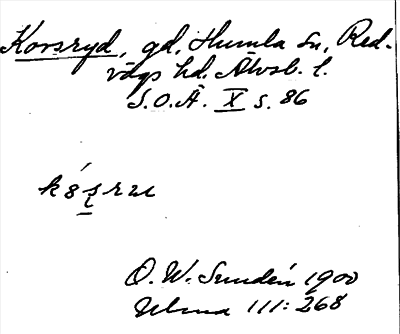 Korsryd, gd, Humla sn, Red-
vägs hd. Älvsb. l.
S.O.Ä. X s. 86
O. W. Sundén 1900
Ulma 111: 268